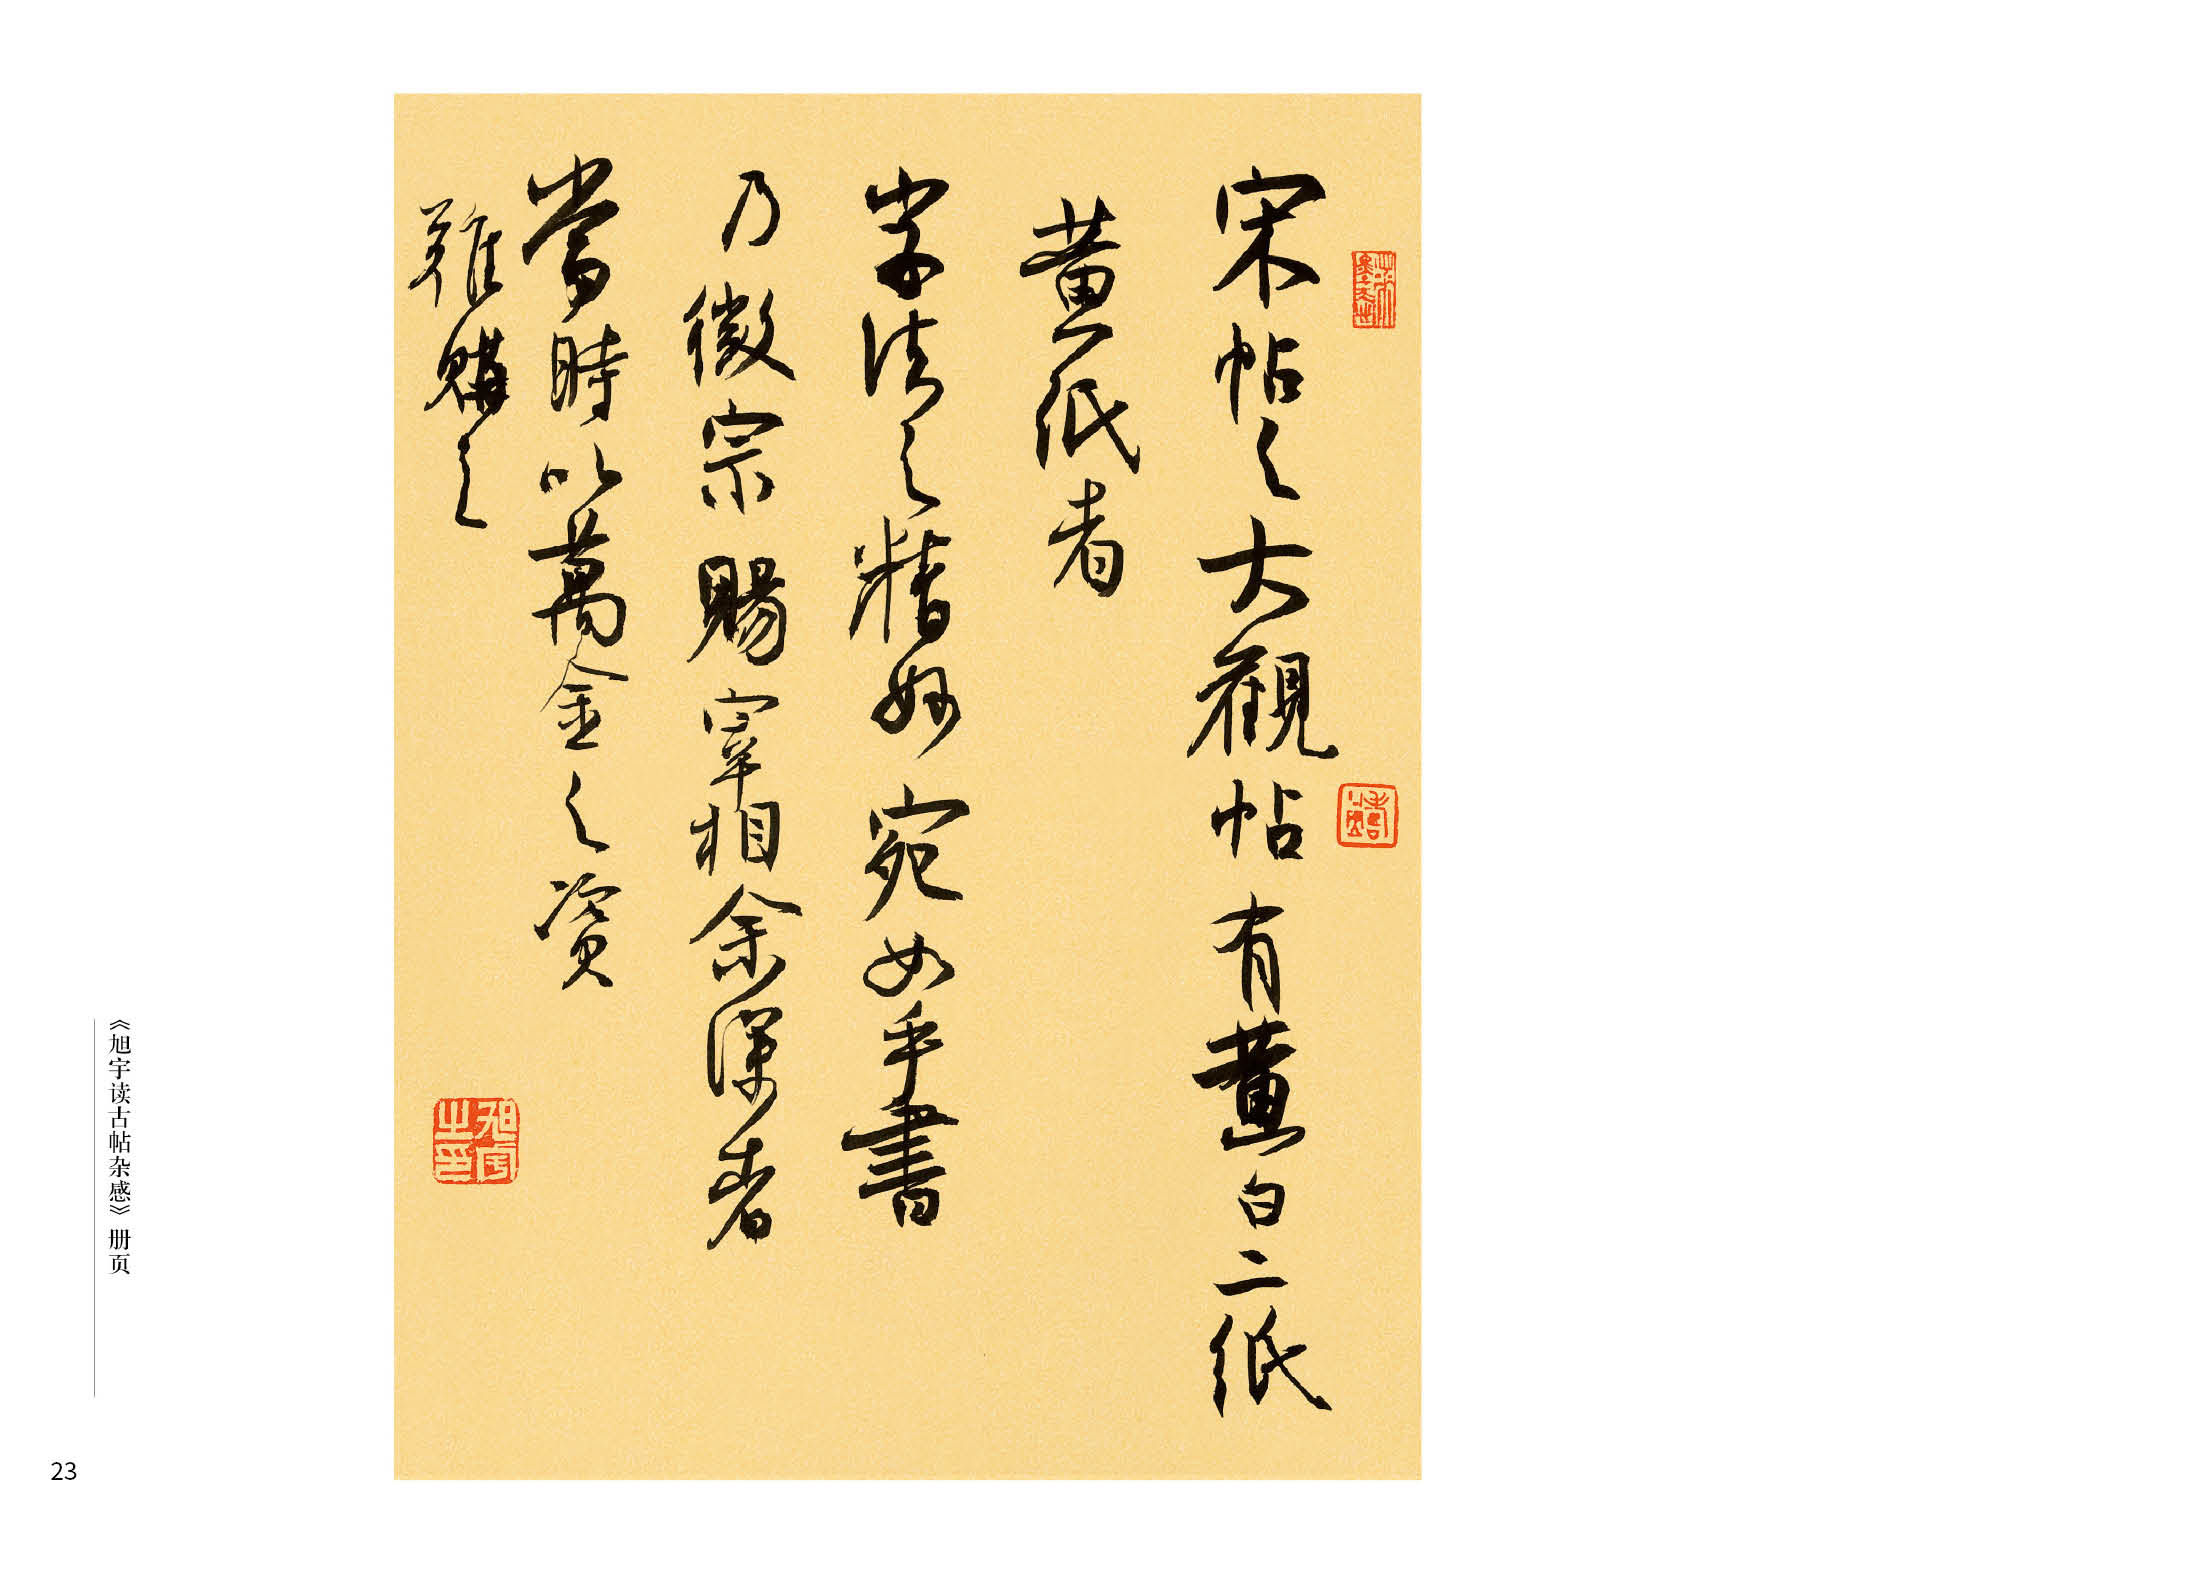 宋帖之大觀帖有黄白二紙
黄紙者
字法之精妙宛如手書
乃徽宗賜宰相余深者
當時以萬金之資
難購之
旭宇之印
《旭宇读古帖杂感》册页
23